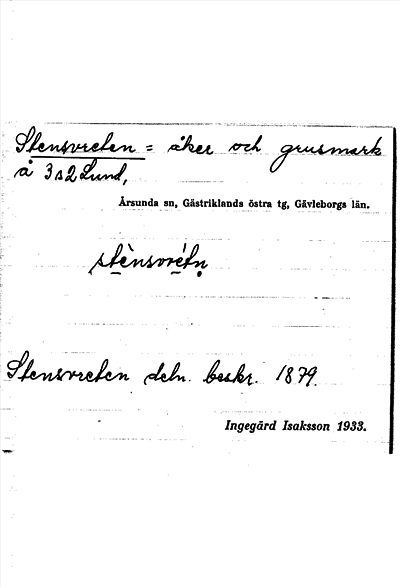 Stensvreten = åker och grusmark
å 3 s2 Lund,
Årsunda sn, Gästriklands östra tg, Gävleborgs län.
stènsvrétn̥
Stensvreten deln. beskr. 1879.
Ingegärd Isaksson 1933.